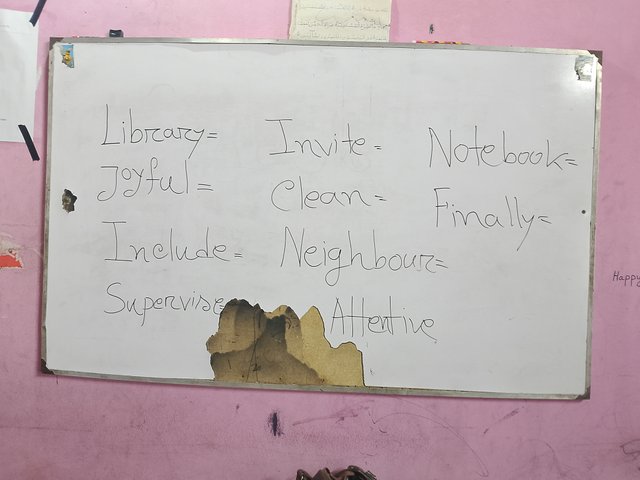 Library= Invite= Notebook=
Joyful= Clean= Finally=
Include= Neighbour=
Supervise= Attentive
Happy